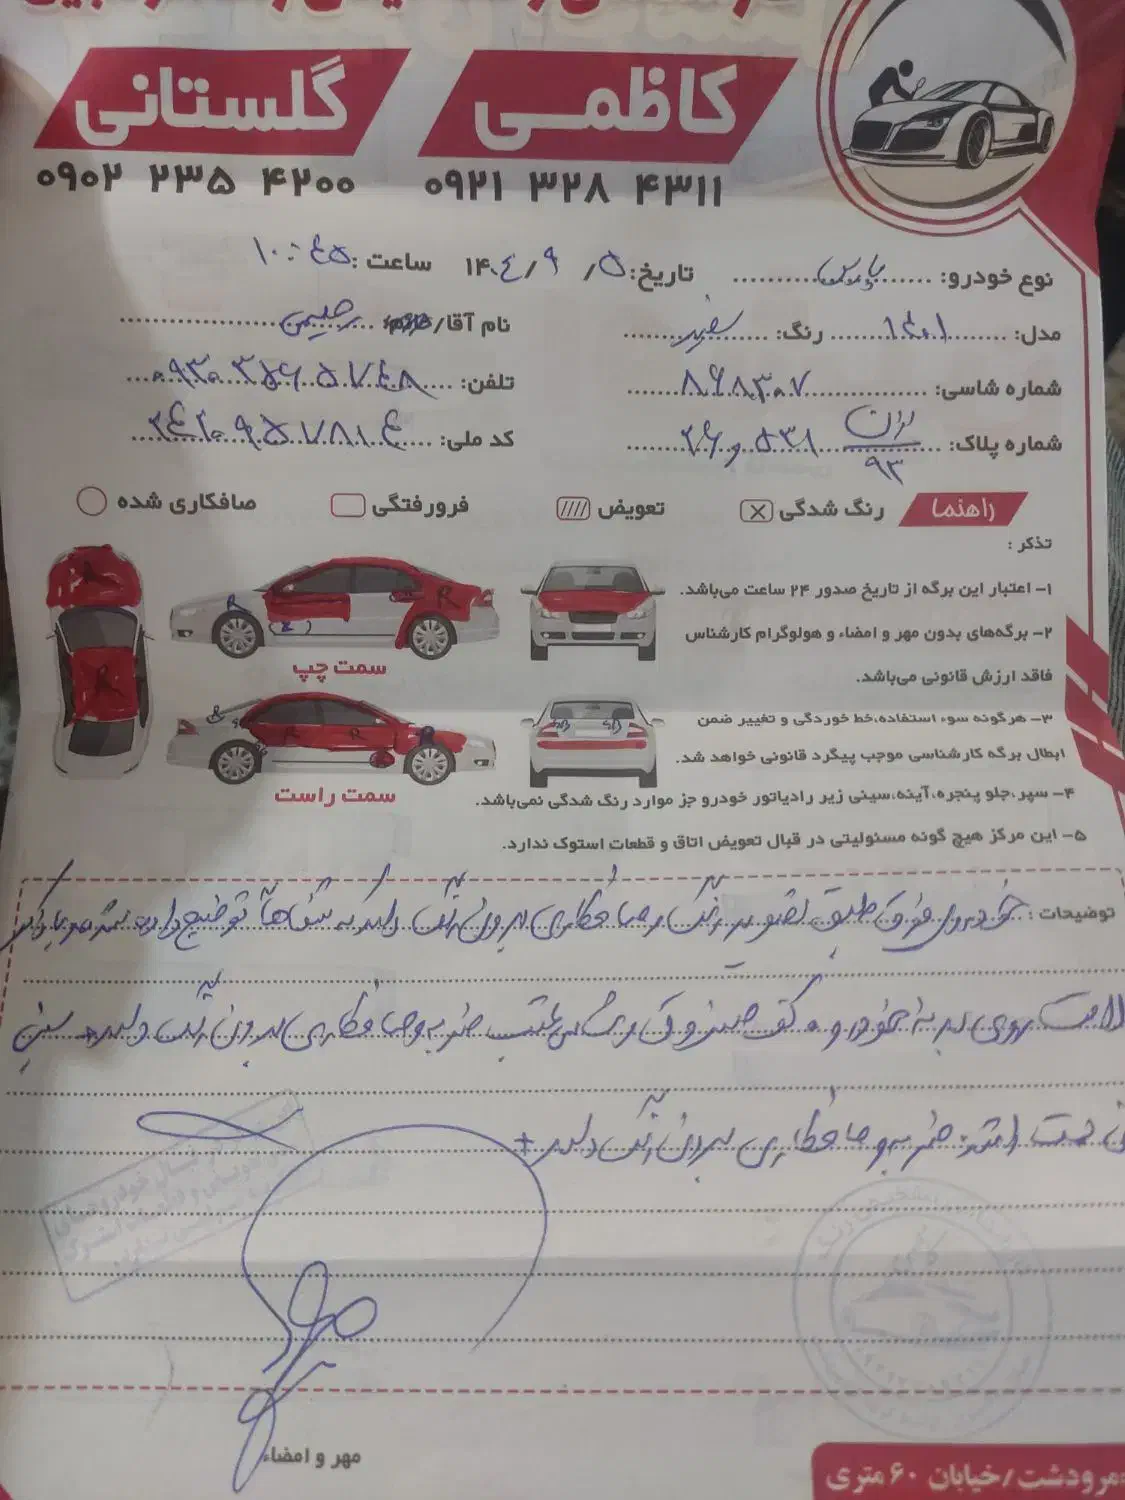 کاظمی
گلستانی
۰۹۲۱ ۳۲۸ ۴۳۱۱
۰۹۰۲ ۲۳۵ ۴۲۰۰
نوع خودرو: پارس تاریخ: ۱۴۰۴/۹/۵ ساعت: ۱۰:۴۵
مدل: ۱۴۰۱ رنگ: سفید نام آقا/خانم: رحیمی
شماره شاسی: ۸۶۸۳۰۷ تلفن: ۰۹۳۰۳۵۶۵۷۴۸
شماره پلاک: ایران ۹۳ ۵۳۱ و ۲۶ کد ملی:
راهنما رنگ شدگی تعویض فرورفتگی صافکاری شده
تذکر :
۱- اعتبار این برگه از تاریخ صدور ۲۴ ساعت می‌باشد.
۲- برگه‌های بدون مهر و امضاء و هولوگرام کارشناس
فاقد ارزش قانونی می‌باشد.
۳- هرگونه سوء استفاده،خط خوردگی و تغییر ضمن
ابطال برگه کارشناسی موجب پیگرد قانونی خواهد شد.
۴- سپر،جلو پنجره،آینه،سینی زیر رادیاتور خودرو جز موارد رنگ شدگی نمی‌باشد.
۵- این مرکز هیچ گونه مسئولیتی در قبال تعویض اتاق و قطعات استوک ندارد.
سمت چپ
سمت راست
R
R
R
R
R
R
R
توضیحات : خودروی فوق طبق تصویر رنگ و صافکاری بدون رنگ دارد که شفاهاً توضیح داده شد
روی بدنه خودرو کف صندوق و شاسی عقب ضربه و صافکاری بدون رنگ دارد + سینی
ضربه و صافکاری بدون رنگ دارد +
مهر و امضاء
مرودشت/خیابان ۶۰ متری